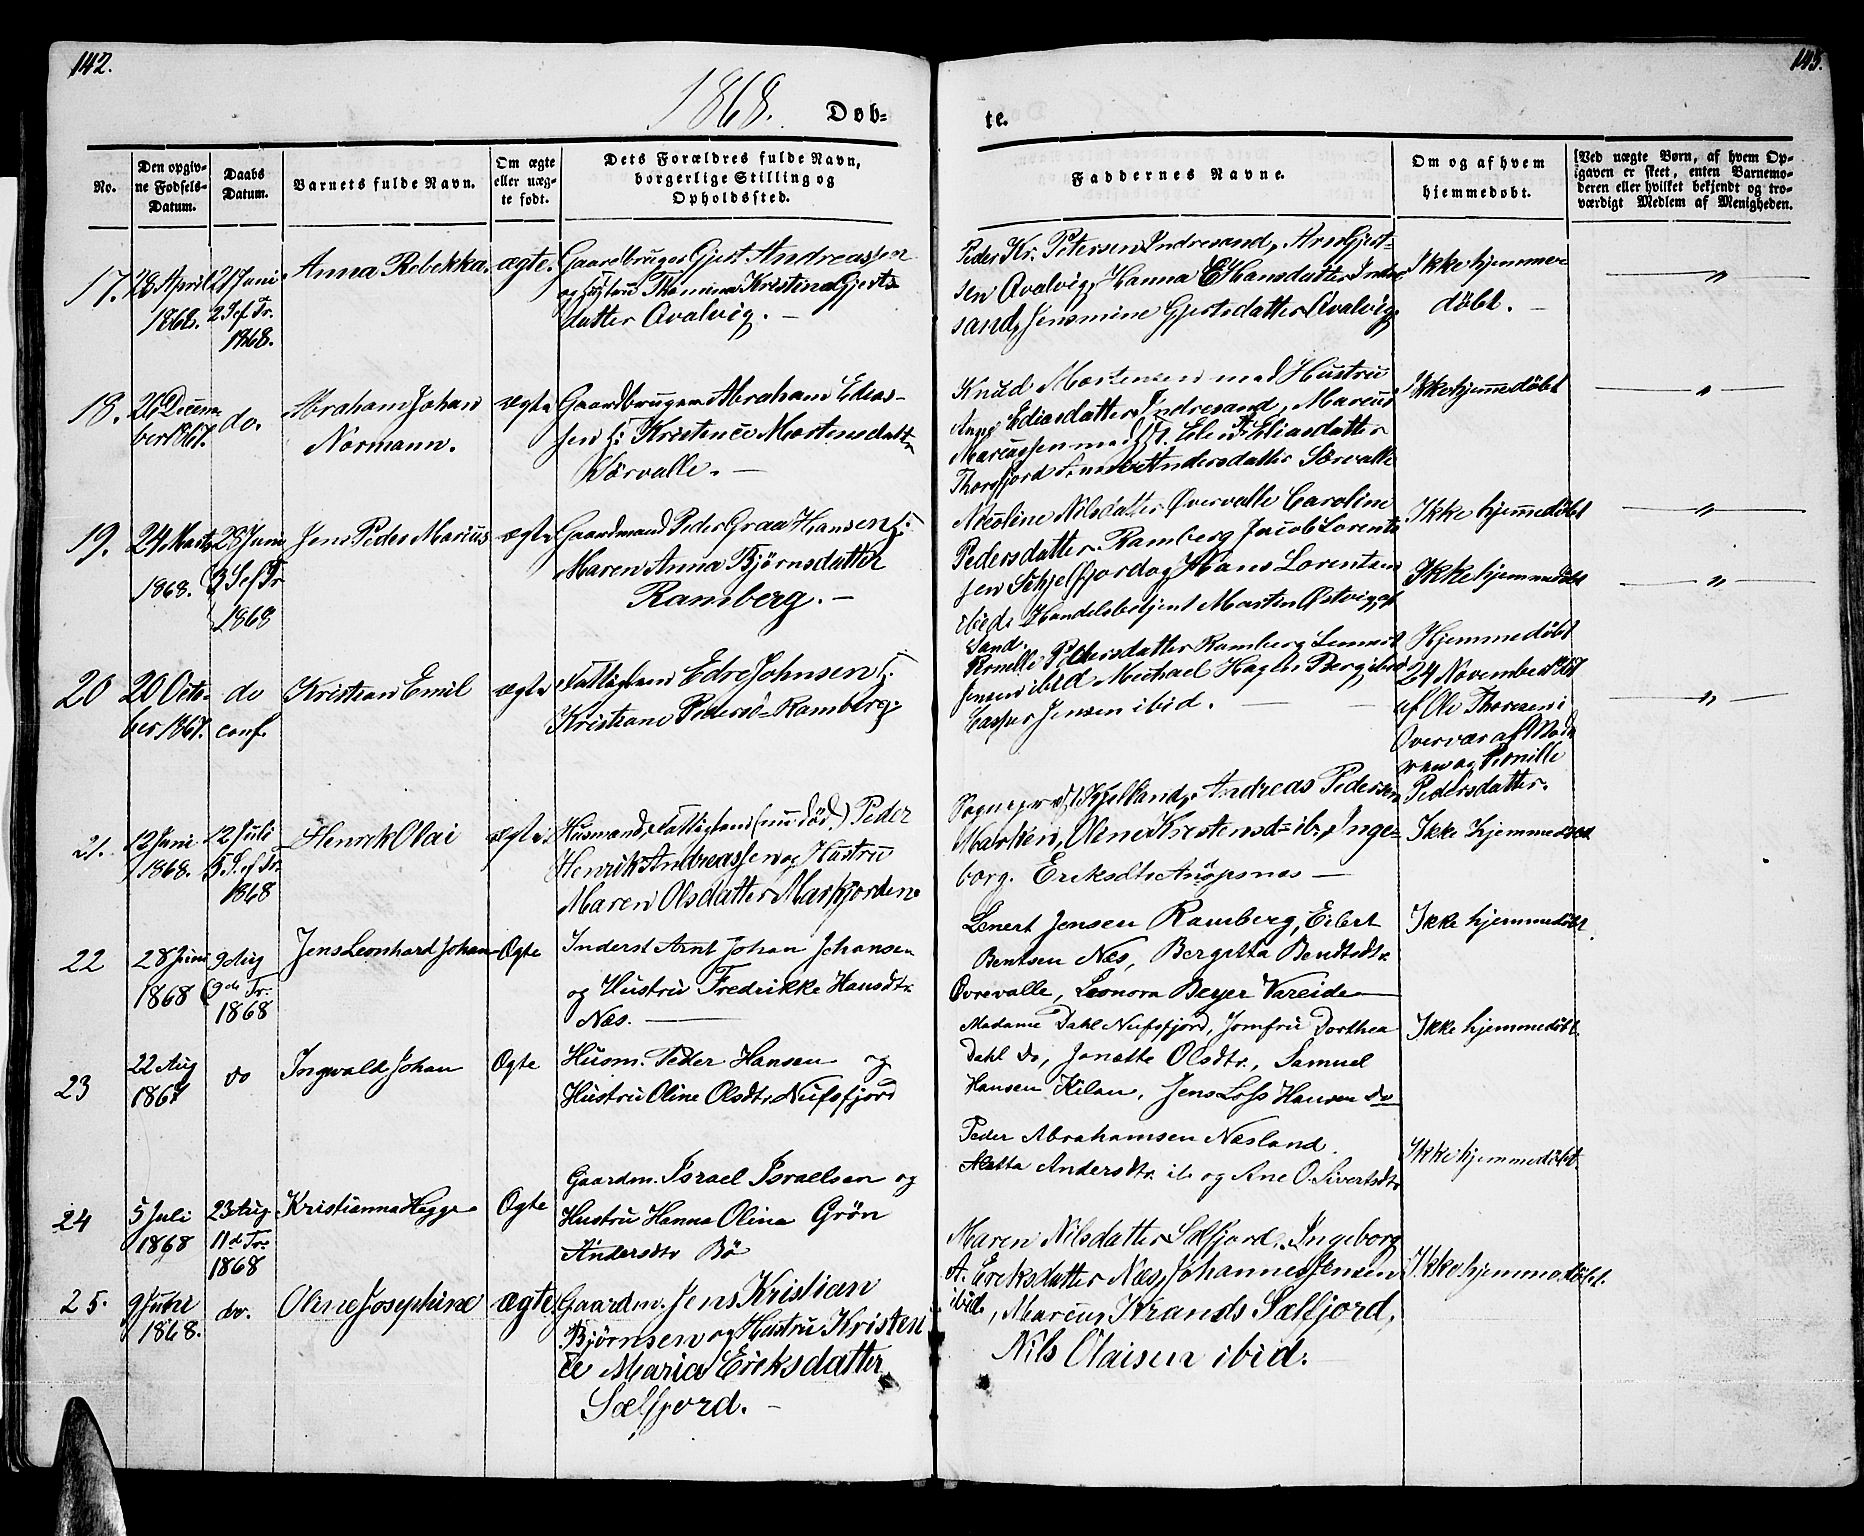 142.
1868.
Døb-
No.
Den opgiv-
ne Fødsels-
Datum.
Daabs
Datum.
Barnets fulde Navn.
Om ægte
eller uæg-
te født.
Dets Forældres fulde Navn,
borgerlige Stilling og
Opholdssted.
17.
28 April
1868.
21 Juni
2 S. ef. Tr.
1868.
Anna Rebekka.
ægte.
Gaardbruger Gjert Andreassen
og Hustru Thomina Kristina Gjerts-
datter Qvalvig. —
18.
26 Decem-
ber 1867.
do.
Abraham Johan
Normann.
ægte
Gaardbruger Abraham Edias-
sen h: Mortensdatt
Sörvalle. —
19.
24 Marts
1868.
28 Juni
3 S. ef. Tr
1868
Jens Peder Marius
ægte
Gaardmand Peder Graa Hansen h:
Maren Anna Bjørnsdatter
Ramberg. —
20
20 Octo-
ber 1867.
do
conf.
Kristian Emil
ægte
Fattiglem Edre Johnsen h:
Kristiane Ramberg.
21.
12 Juni
1868.
12 Juli
5 S. ef. Tr.
1868
Henrik Olai
ægte
Husmand, Fattiglem (nu død) Peder
Henrik Andreassen og Hustru
Maren Olsdatter Markjorden
22
28 Juni
1868
9 Aug
9de Tr.
1868
Jens Leonhard Johan
Ægte
Inderst Arnt Johan Johansen
og Hustru Fredrikke Hansdtr
Næs. —
23
22 Aug
1867
do
Ingwald Johan
Ægte
Husm. Peder Hansen og
Hustru Oline Olsdtr Nufsfjord
24
5 Juli
1868
23 Aug
11te Tr.
1868
Kristianna Hegge
Ægte
Gaardm. Israel Israelsen og
Hustru Hanna Olina Grön
Andersdtr Bö
25.
1868.
do.
Oline Josephine
ægte
Gaardm. Jens Kristian
Bjørnsen og Hustru Kristen
ce Maria Eriksdatter
Sælfjord. —
te.
Faddernes Navne.
Om og af hvem
hjemmedøbt.
Ved uægte Børn, af hvem Op-
igaven er skeet, enten Barnemo-
deren eller hvilket bekjendt og tro-
værdigt Medlem af Menigheden.
Peder Kr. Petersen Indresand, Arn Gjert-
sen Qvalvig, Hanna E Hansdatter Indre
sand, Jensmine Gjertsdatter Qvalvig
Ikke hjemme
døbt. —
— " —
Knud Mortensen med Hustru
Ediasdatter Indresand, Marcus
Marcussen med H. Elen A. Eliasdatter
Andersdatter Sörvalle
Ikke hjemmedøbt
— " —
Nicoline Nilsdatter Øvervalle Caroline
Pedersdatter Ramberg Jacob Lorent-
sen Schjelfjord og Hans Lorentsen
ibid. Handelsbetjent Morten Østvig
Sand.
Ikke hjemmedøbt
— " —
Ikke hjemmedøbt
— " —
Pernelle Pedersdatter Ramberg Lennert
Jensen ibid Michael Hagb. Berg ibid
Casper Jensen ibid. —
Hjemmedøbt
24 November 1867
af Ole Thoresen i
Overvær af Mod
eren og Pernille
Pedersdatter.
— " —
Kjelland, Andreas Pedersen
Marken, Oline Kristensd= ib, Inge-
borg. Eriksdtr —
Ikke hjemmedøbt
Lenert Jensen Ramberg, Eilert
Bentsen Næs, Bergitta Bendtsdtr
Øvrevalle, Leonora Beyer Vareide —
Ikke hjemmedøbt
Madame Dahl Nufsfjord, Jomfru Dorthea
Dahl do, Jonette Olsdtr, Samuel
Hansen Kilan, Jens Loss Hansen do
Ikke hjemmedøbt.
Peder Abrahamsen Næsland.
Andersdtr ib og Ane O. Sivertsdtr
Ikke hjemmedøbt
Maren Nilsdatter Sælfjord, Ingeborg
A. Eriksdatter Næs, Johannes Jensen
ibid, Marcus Krands Sælfjord,
Nils Olaisen ibid.
Ikke hjemmedøbt.